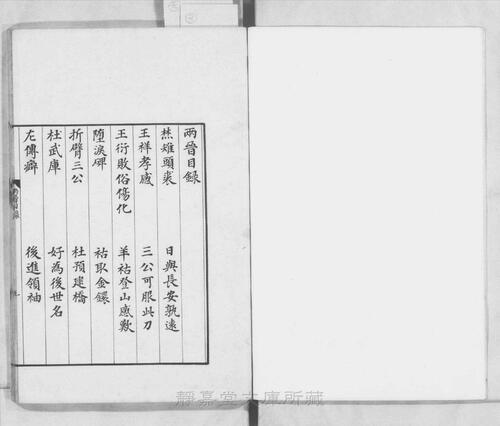 兩晉目錄
焚雉頭裘　日與長安孰遠
王祥孝感　三公可服此刀
王衍敗俗傷化　羊祜登山感歎
墮淚碑　祜取金鐶
折臂三公　杜預建橋
杜武庫　好為後世名
左傳癖　後進領袖
靜嘉堂文庫所藏